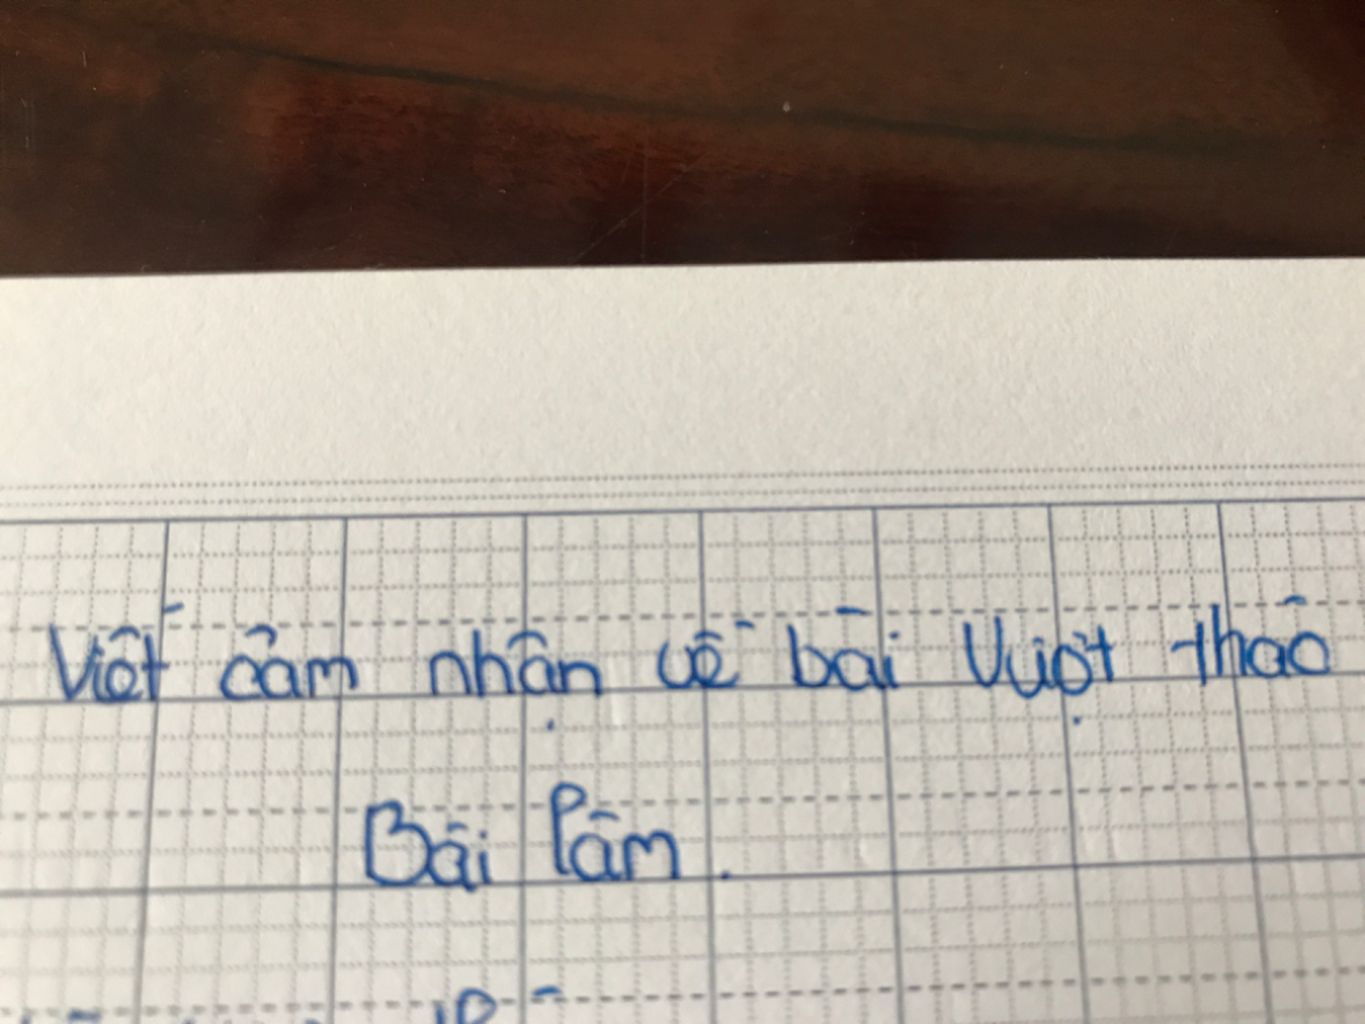 Viết cảm nhận về bài Vượt thác
Bài làm.